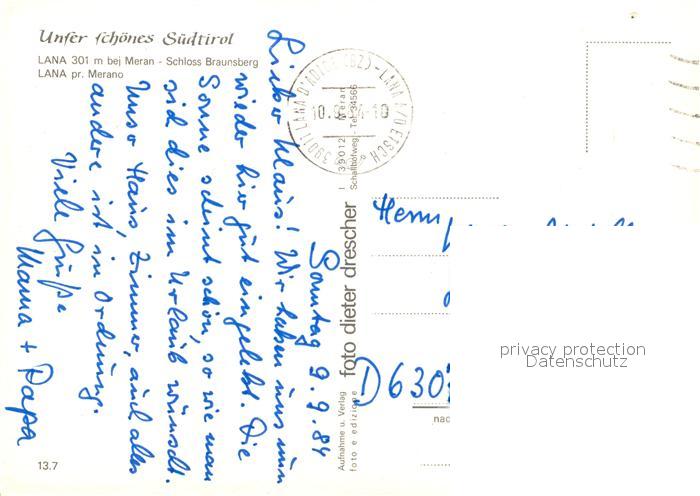 Unser schönes Südtirol
LANA 301 m bei Meran - Schloss Braunsberg
LANA pr. Merano
Sonntag 9.9.84
Lieber Klaus! Wir haben uns nun
wieder hier gut eingelebt. Die
Sonne scheint schön, so wie man
sich dies im Urlaub wünscht.
Unser Haus, Zimmer, auch alles
andere ist in Ordnung.
Viele Grüße
Mama + Papa
13.7
39011 LANA D'ADIGE (BZ) - LANA A/D ETSCH
Aufnahme u. Verlag
foto e edizione
foto dieter drescher
I 39012 Meran
Schallhofweg - Tel. 34566
Herrn
D 630
privacy protection
Datenschutz